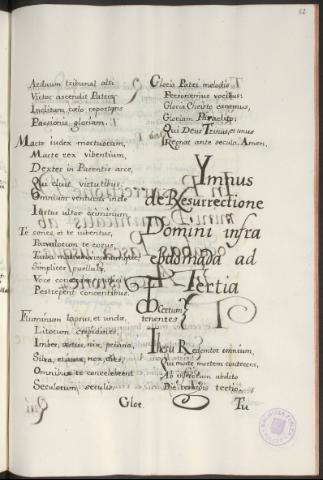 52
Aeduum tribunal alti
Victor ascendit Patris
Inclitam coelo reportans
Passionis gloriam.
Macte iudex mortuorum,
Macte rex viventium,
Dexter in Parentis arce,
Qui cluit virtutibus
Omnium venturus inde
Iustus ultor criminum
Te senes et te iuventus,
Parvulorum te corus,
Turba matrum
Simplices puellulae,
Voce concordes
Perstrepent concentibus.
Fluminum lapsus, et undae,
Litorum crepidines,
Imber, aestus, nix, pruina,
Silva, et aura, nox, dies,
Omnibus te concelebrent
Seculorum seculis.
Glor.
Gloria Patri melodis
Personemus vocibus:
Gloria Christo canamus,
Gloriam Paraclito:
Qui Deus Trinus, et unus
Regnat ante secula. Amen.
Ymnus
de Resurrectione
Domini infra
ebdomada ad
Tertia
dicetum
tenentes
Ihesu Redemtor omnium,
Qui morte mortem conterens,
Ab inferorum abdito
Die redisti tertio.
Tu